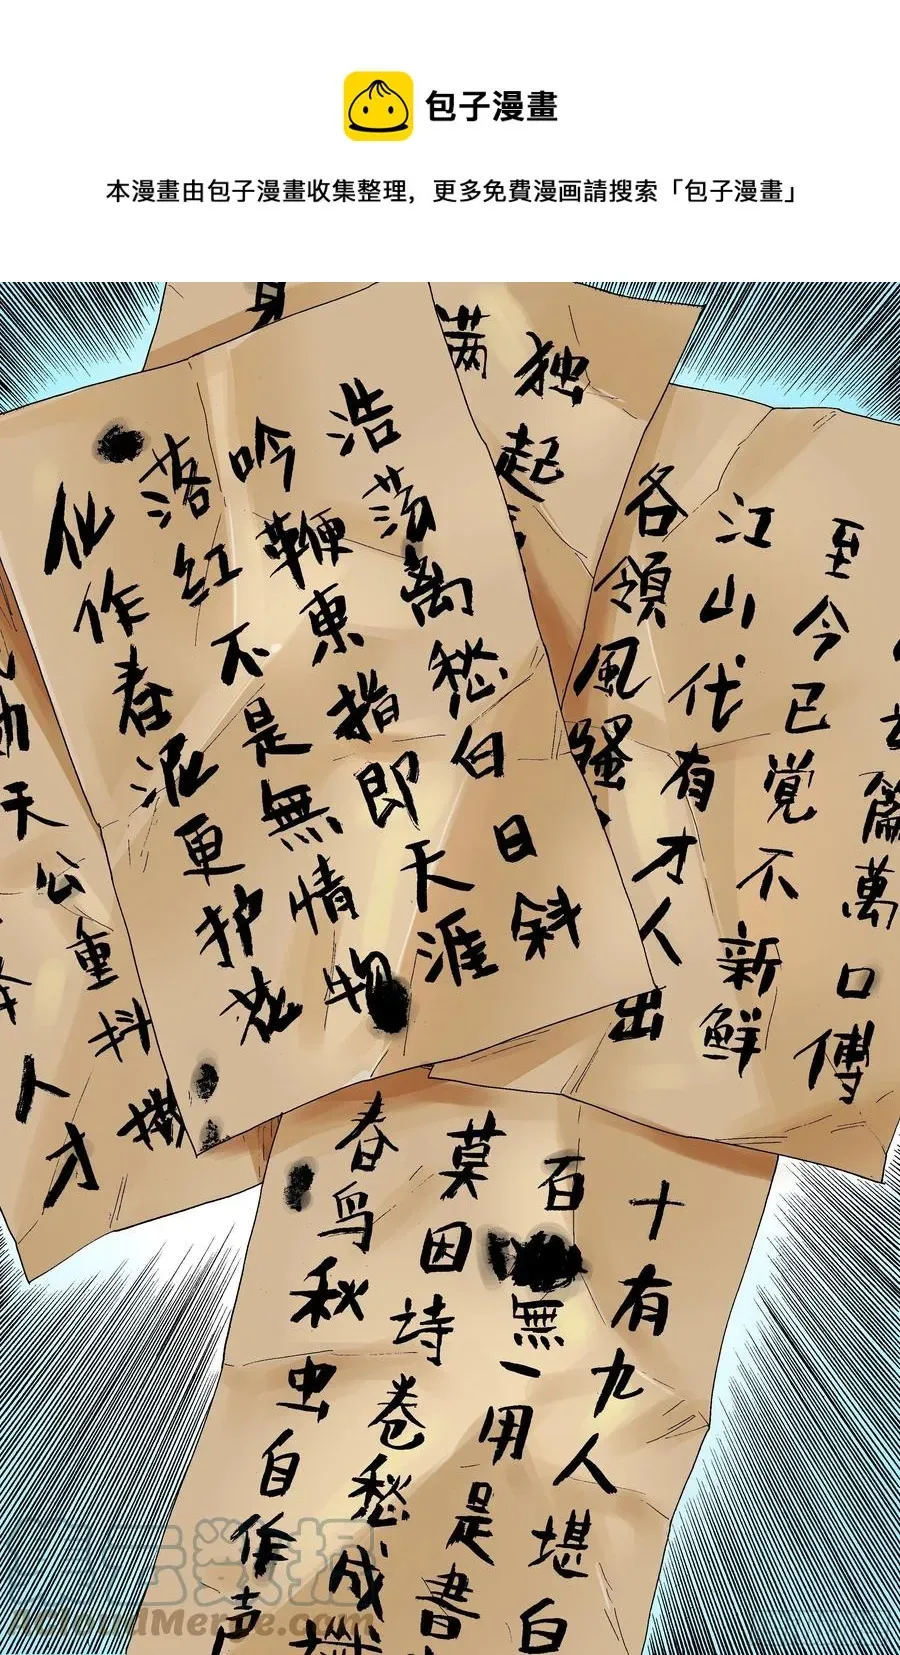 包子漫畫
本漫畫由包子漫畫收集整理，更多免費漫画請搜索「包子漫畫」
身
满
独起
浩荡离愁白日斜
吟鞭東指即天涯
落红不是無情物
化作春泥更护花
篇萬口傳
至今已觉不新鮮
江山代有才人出
各領風騷
天公重抖擻
人才
十有九人堪白
百無一用是書
莫因诗卷愁成
春鸟秋虫自作声
ACloudMerge.com